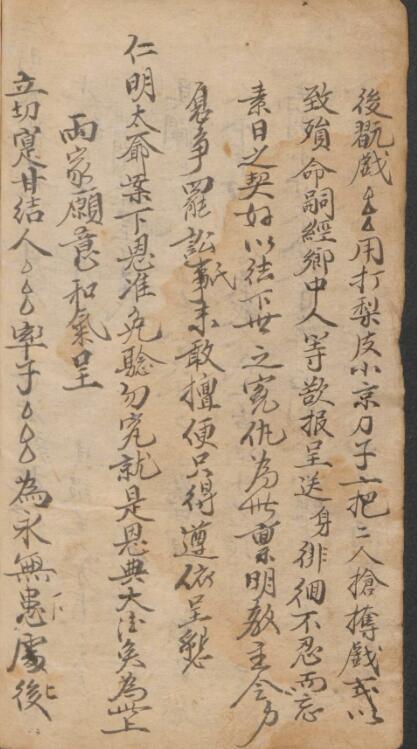 後翫戲厶厶用打梨皮小京刀子一把二人搶奪戲或以
致殞命嗣經鄉中人等欲报呈送身徘徊不忍而忘
素日之契好以结下世之冤仇為此稟明教主令身
息争罷訟事祇未敢擅便只得遵依呈懇
仁明太爺案下恩准免驗勿究就是恩典大德矣為此上
兩家願意和氣呈
立切寔甘结人厶厶厶率子厶厶厶為永無患慮後